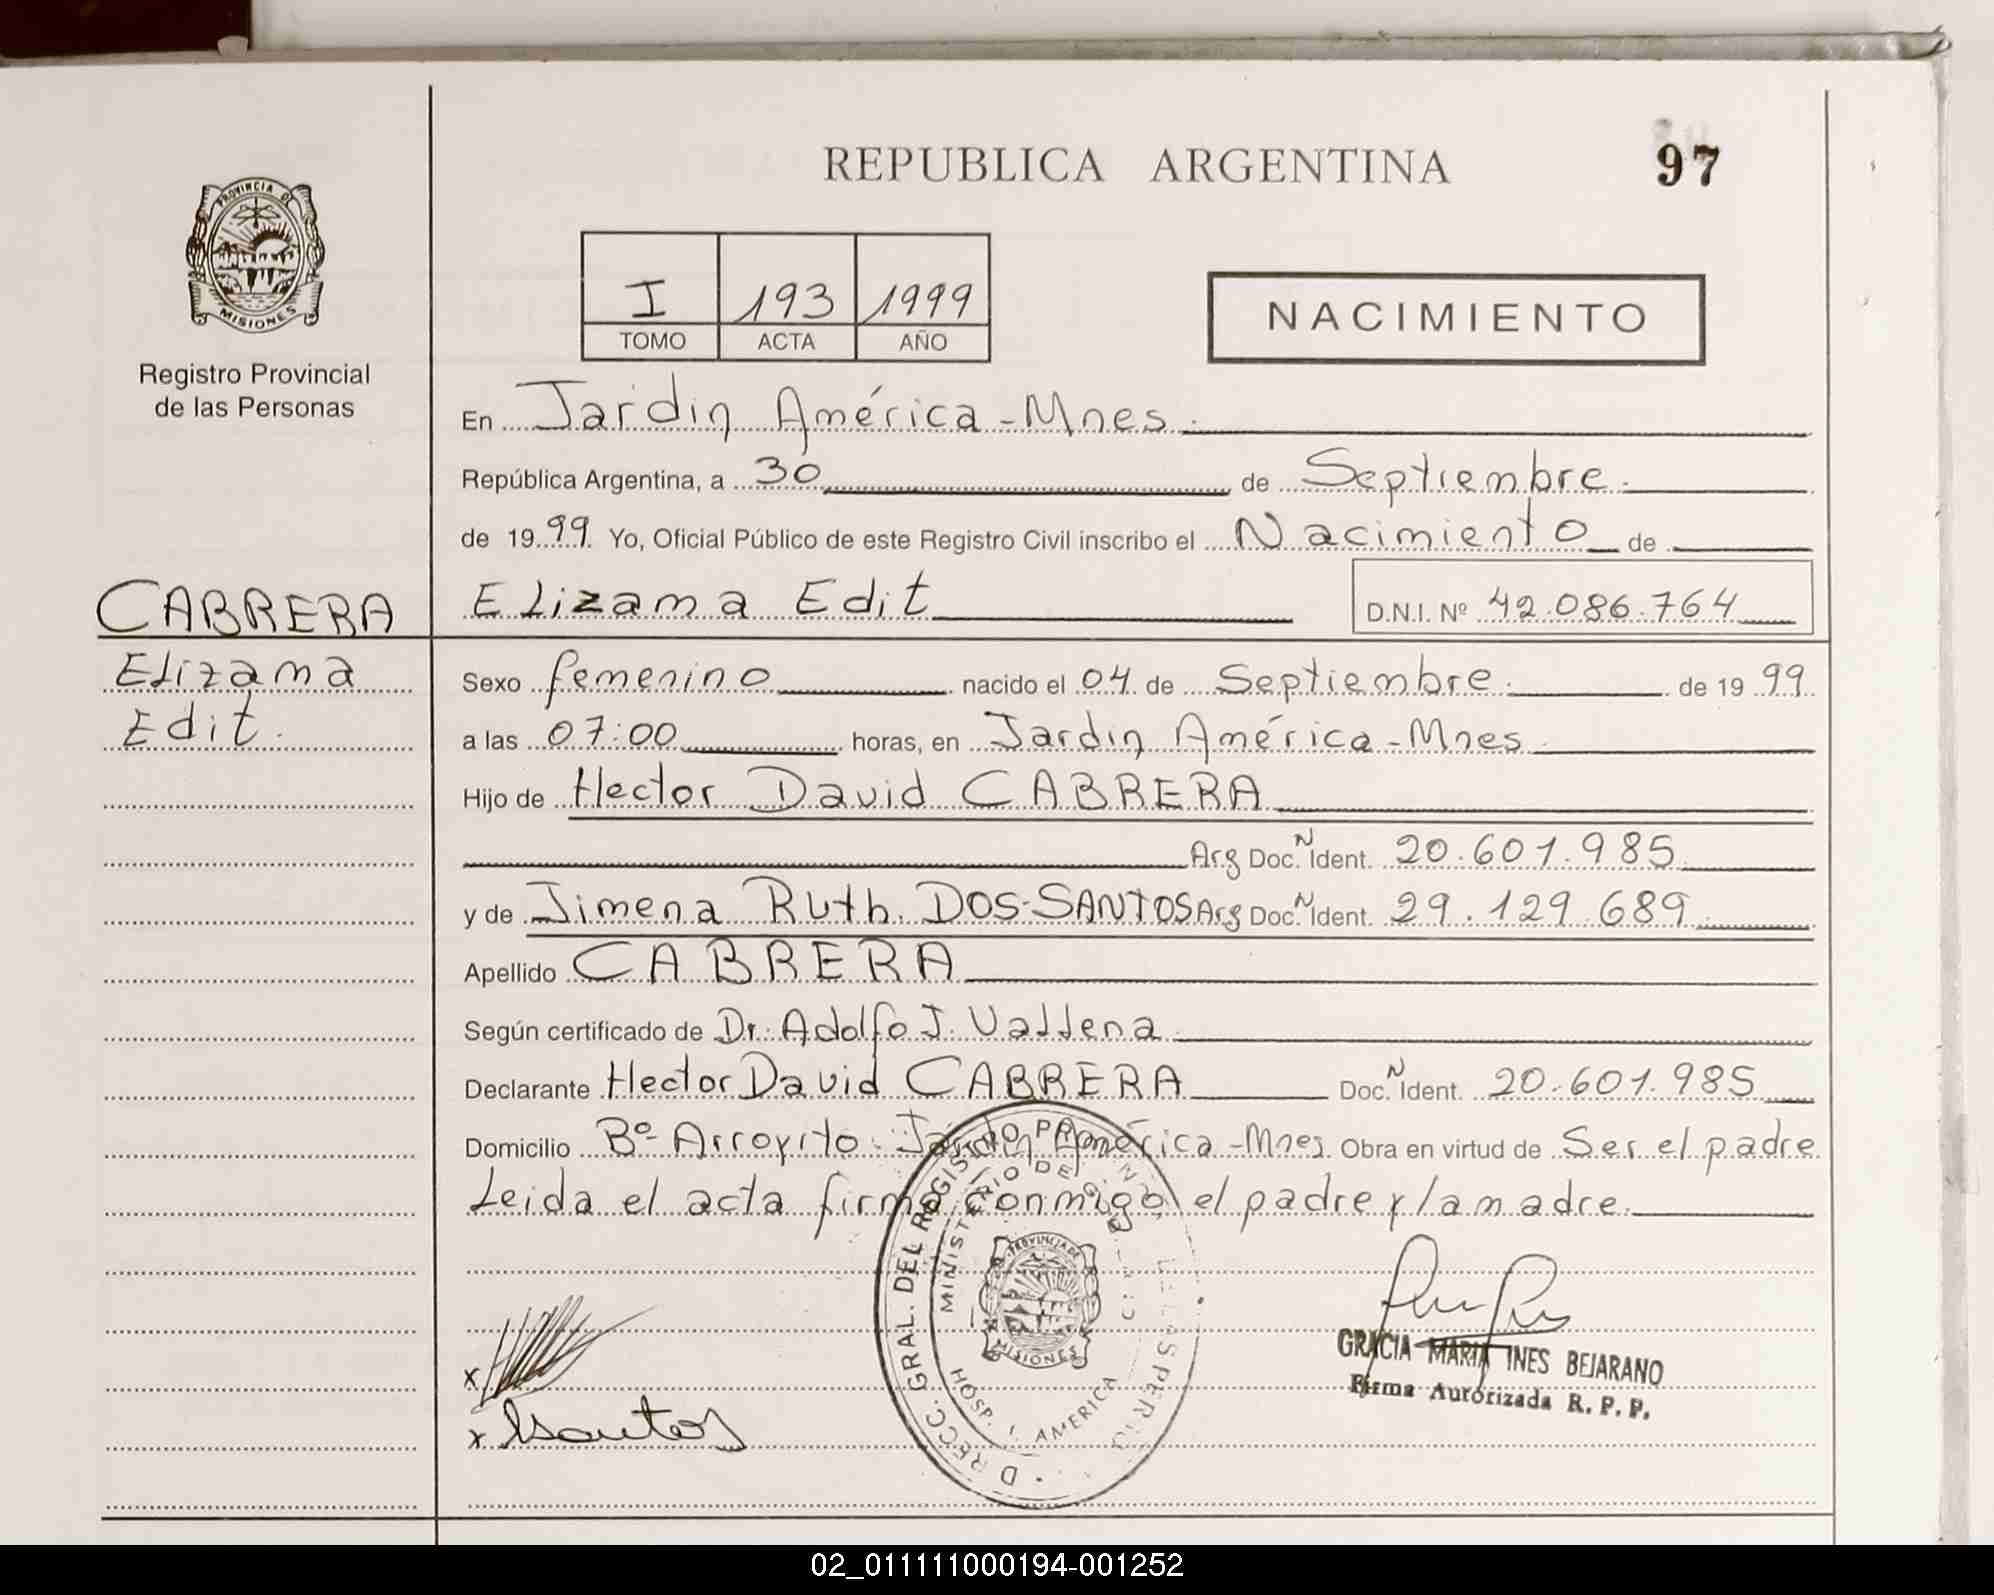 97
REPUBLICA ARGENTINA
PROVINCIA DE
MISIONES
Registro Provincial
de las Personas
I 193 1999
TOMO ACTA AÑO
NACIMIENTO
En Jardin América - Mnes.
República Argentina, a 30 de Septiembre.
de 1999 Yo, Oficial Público de este Registro Civil inscribo el Nacimiento de
CABRERA Elizama Edit D.N.I. Nº 42.086.764
Elizama Sexo femenino nacido el 04 de Septiembre. de 1999
Edit. a las 07:00 horas, en Jardin América - Mnes.
Hijo de Hector David CABRERA
Arg Doc. N Ident. 20.601.985
y de Jimena Ruth DOS-SANTOS Arg Doc. N Ident. 29.129.689
Apellido CABRERA
Según certificado de Dr. Adolfo J.
Declarante Hector David CABRERA Doc. N Ident. 20.601.985
Domicilio Bº Arroyito - Jardin América - Mnes Obra en virtud de Ser el padre
Leida el acta firma conmigo, el padre y la madre.
DIRECC. GRAL. DEL REGISTRO
MINISTERIO DE
PROVINCIA DE
MISIONES
HOSP. J. AMERICA
GRACIA MARIA INES BEJARANO
Firma Autorizada R. P. P.
x
x
02_011111000194-001252